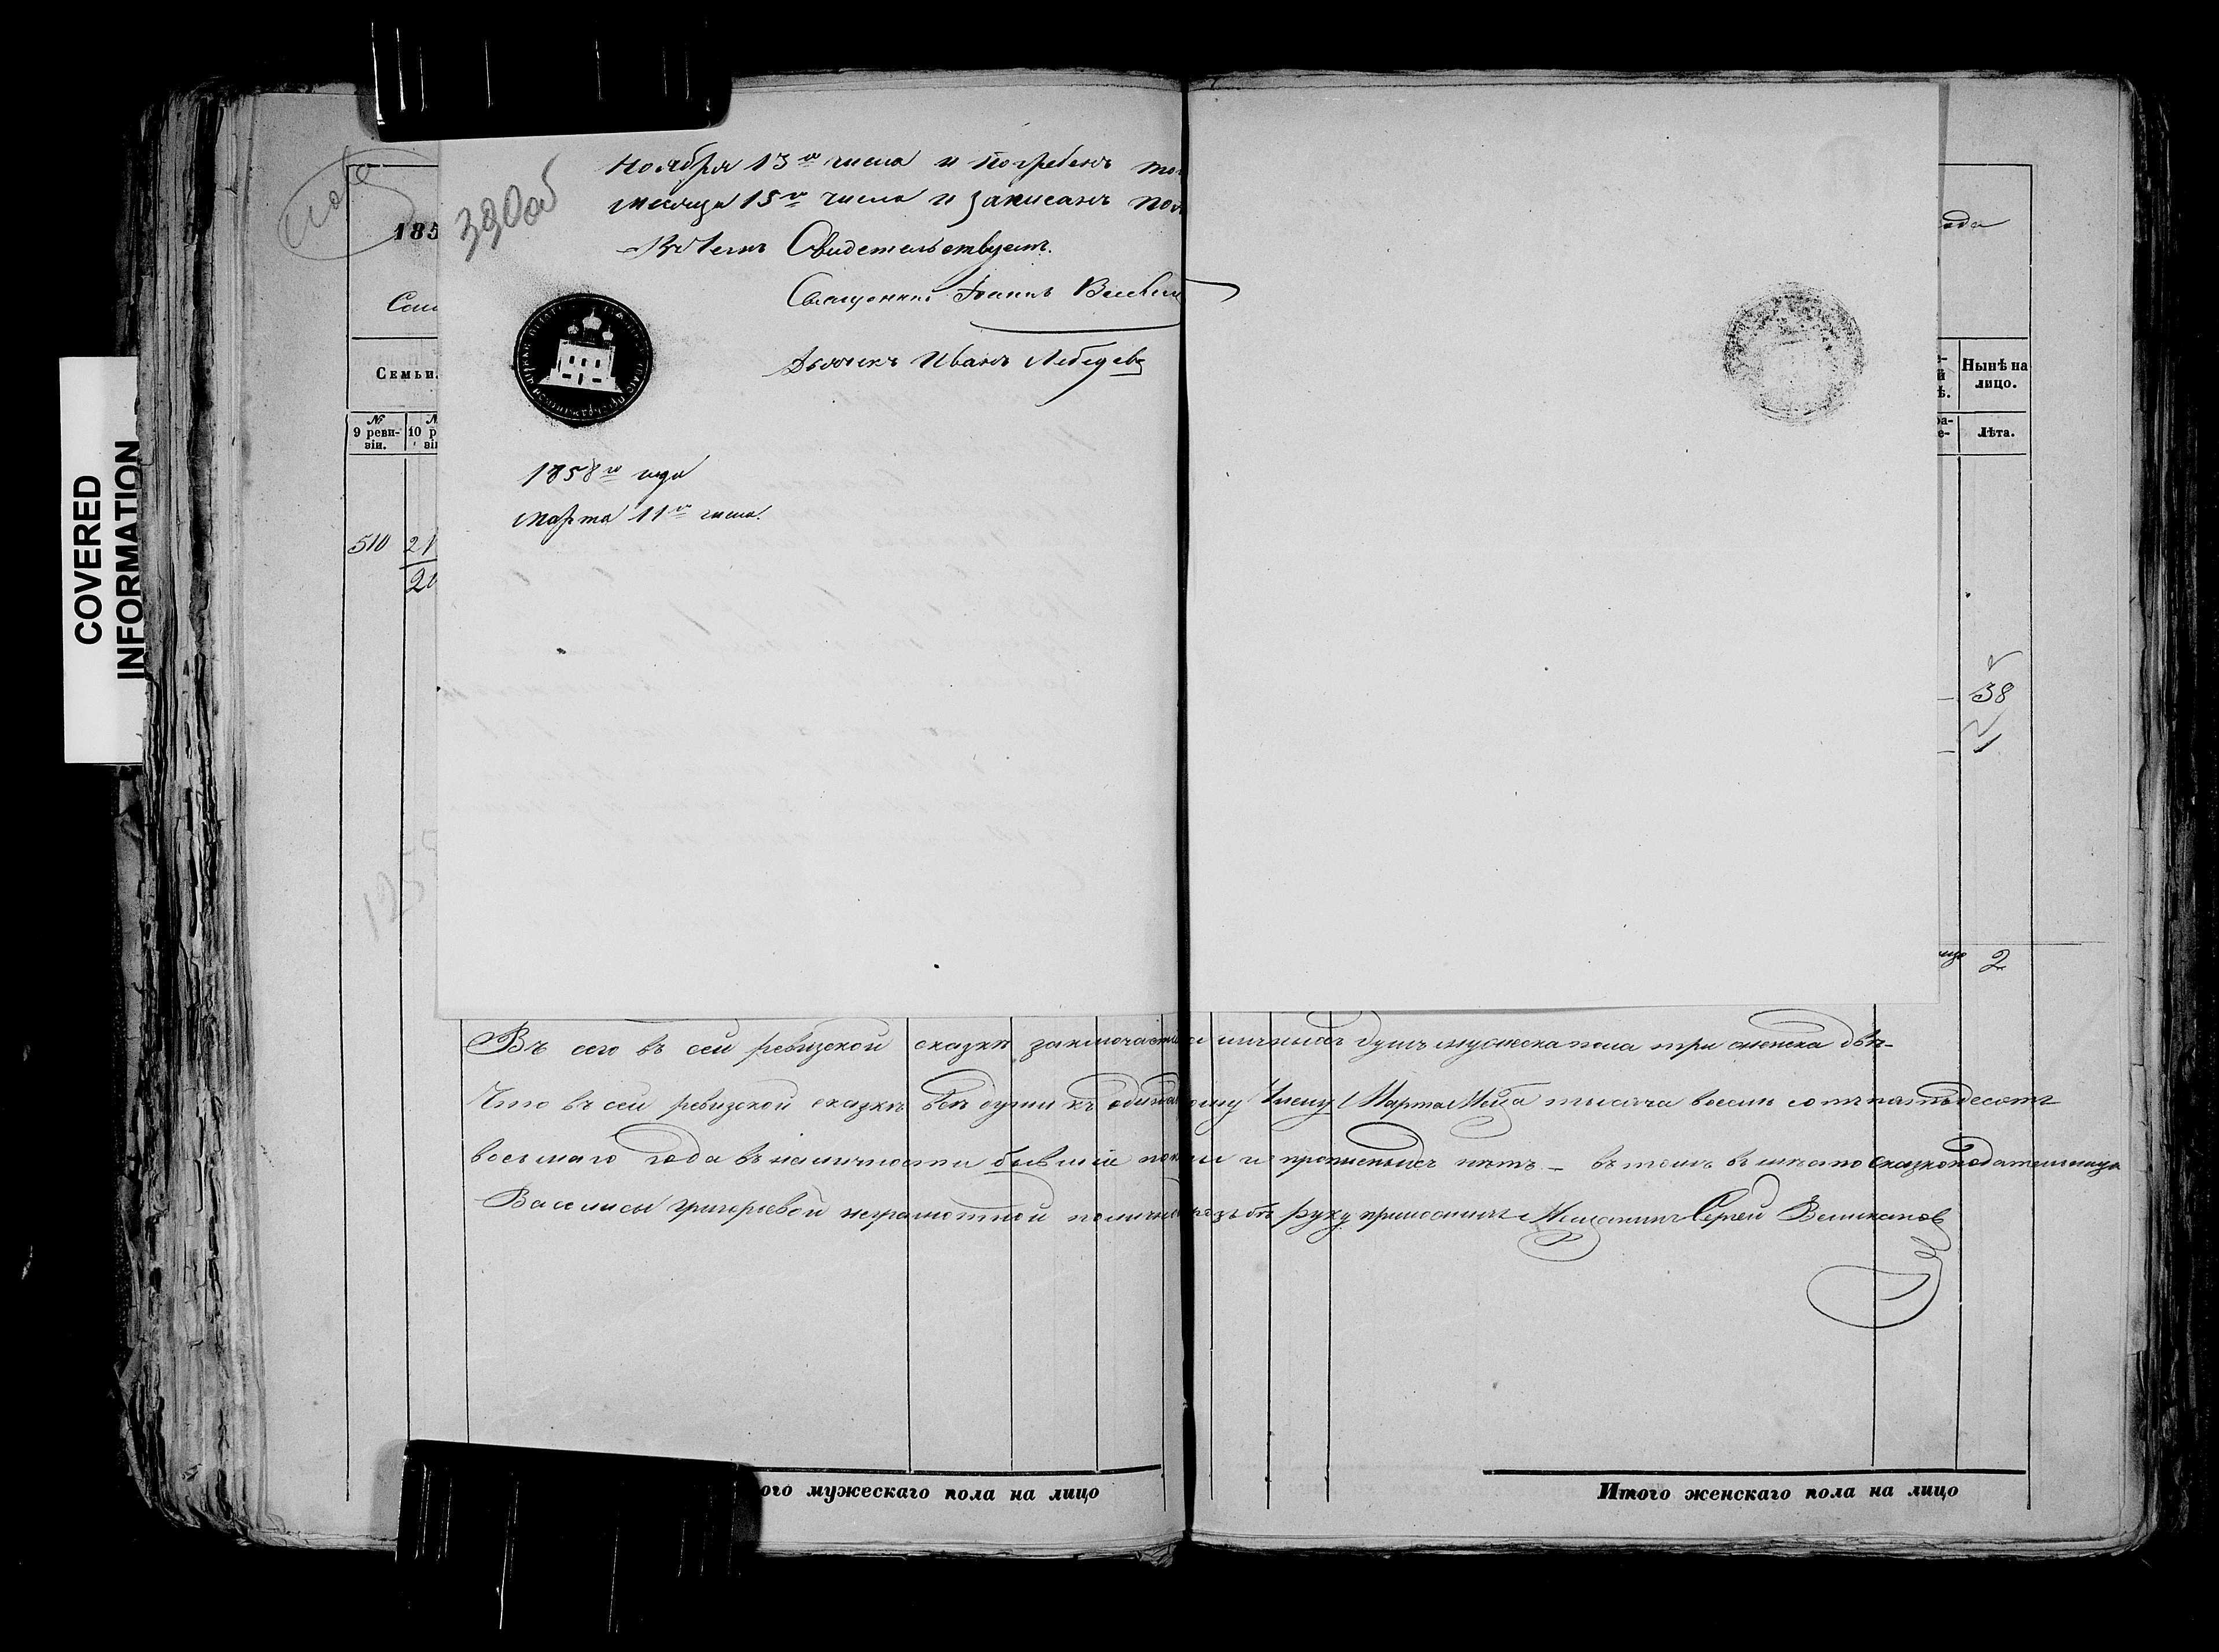 COVERED
INFORMATION
390об
Ноября 13го числа и погребенъ то
месяца 15го числа и записанъ по
въ чемъ Свидетельствуетъ.
Священникъ Iоаннъ
Дьячекъ Иванъ Лебедевъ
1858го года
марта 11го числа.
185
Семьи.
№
9 реви-
зіи.
10 р
зі
510
21
20
ода
Нынѣ на
лицо.
Лѣта.
38
1
2
Въ сего въ сей ревизской сказкѣ заключается личныхъ душъ мужеска пола три женска двѣ
Что въ сей ревизской сказкѣ всѣ души къ Числу Марта тысяча восемь сотъ пятьдесятъ
восьмаго года въ наличности бывшіе и прописныхъ нѣтъ – въ томъ въ мѣсто сказкоподательницы
Василисы григорьевой неграмотной по личной прозьбѣ руку приложилъ Мещанинъ Сергей Великановъ
ого мужескаго пола на лицо
Итого женскаго пола на лицо